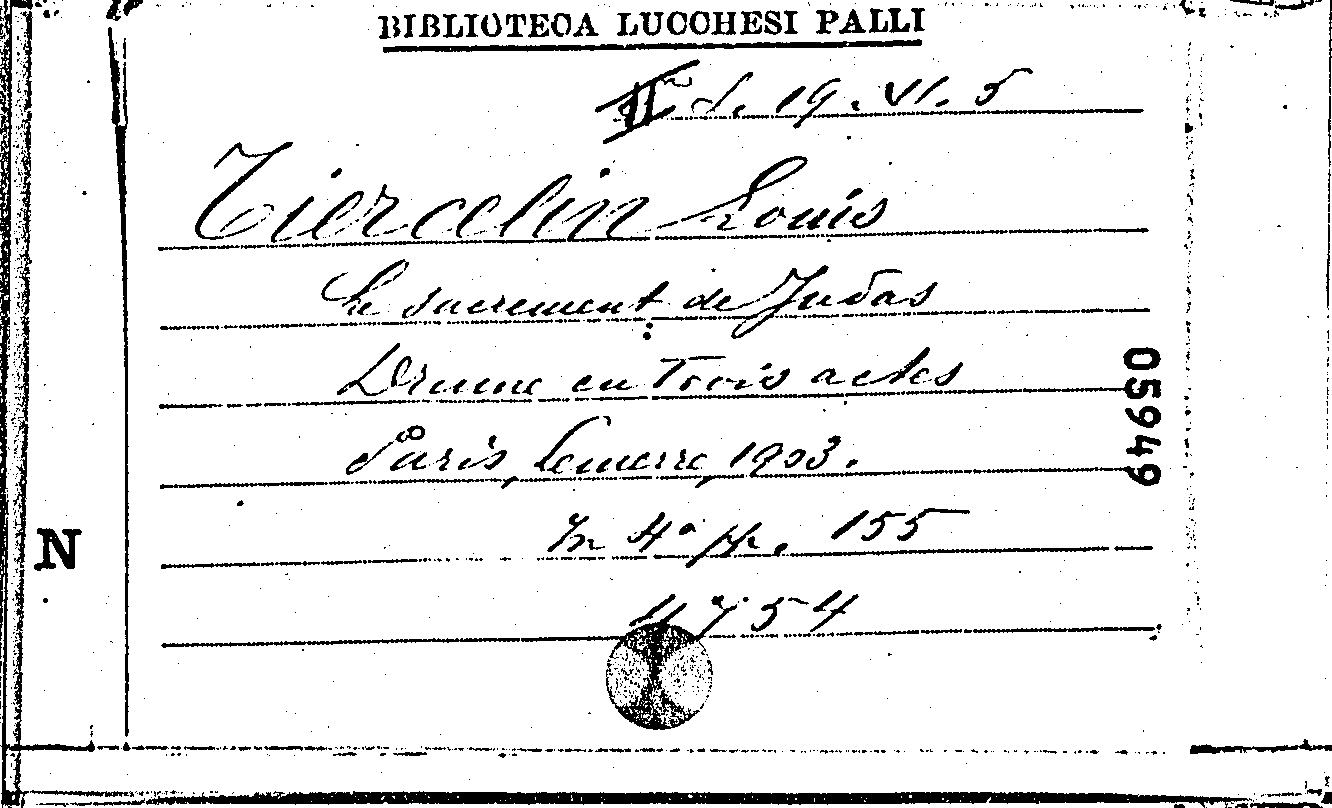 BIBLIOTECA LUCCHESI PALLI
II d. 19. VI. 5
Tiercelin Louis
Le sacrement de Judas
Drame en Trois actes
Paris, Lemerre, 1903.
In 4° pp. 155
4754
05949
N